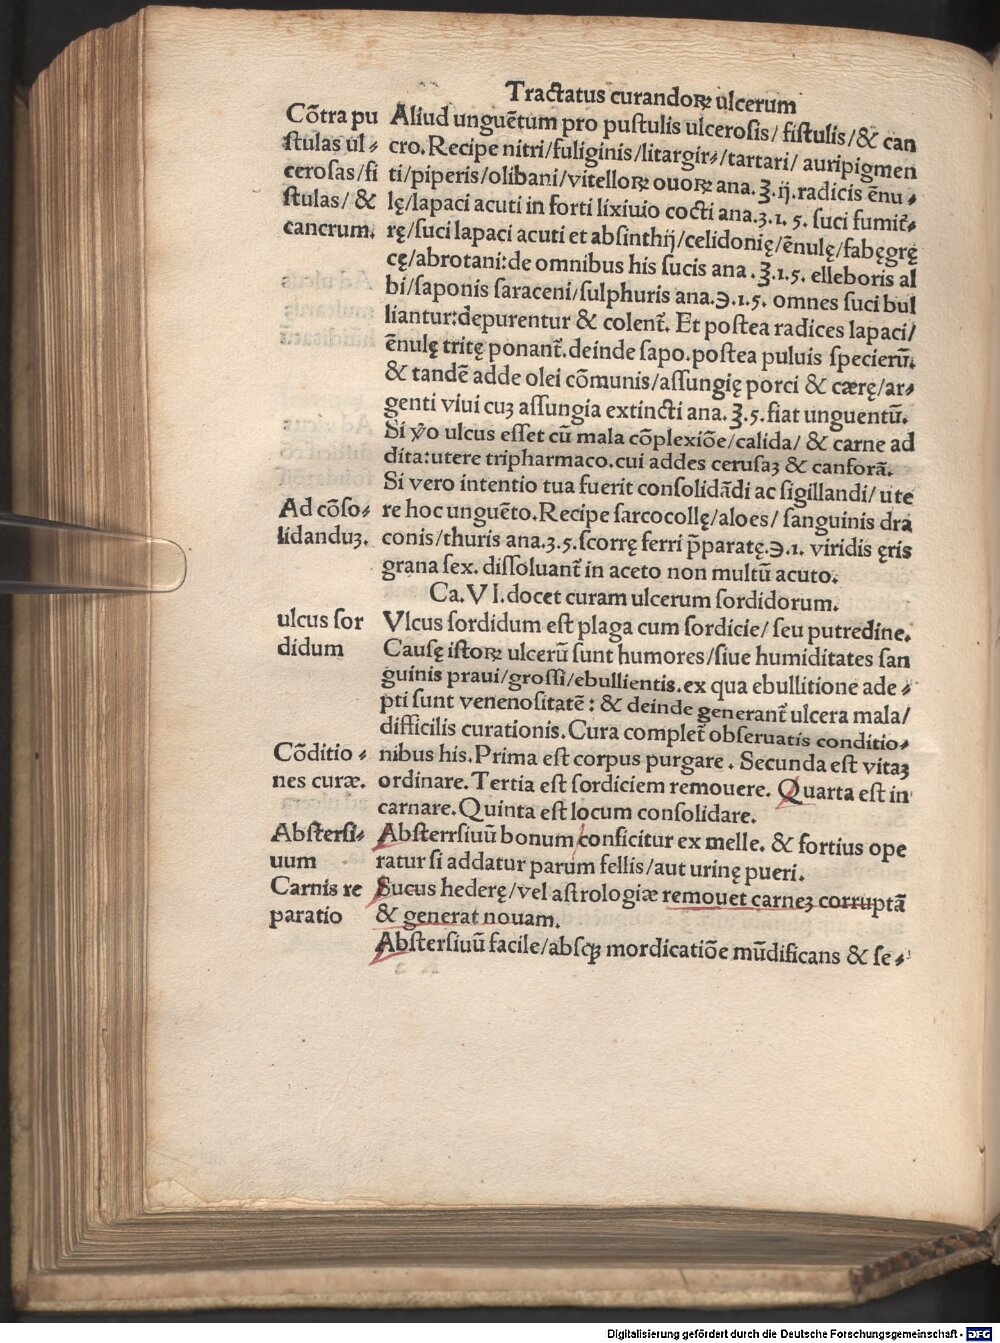 Tractatus curandoꝝ ulcerum
Cõtra pu
ſtulas ul⸗
ceroſas/fi
ſtulas/ &
cancrum.
Aliud unguẽtum pro puſtulis ulceroſis/ fiſtulis/& can
cro.Recipe nitri/fuliginis/litargir⸗/tartari/ auripigmen
ti/piperis/olibani/vitelloꝝ ouoꝝ ana.℥.ij.radicis ẽnu⸗
lę/lapaci acuti in forti lixiuio cocti ana.ʒ.1. 5. ſuci fumiẗ⸗
rę/ſuci lapaci acuti et abſinthij/celidonię/ẽnulę/fabęgrę
cę/abrotani:de omnibus his ſucis ana .℥.1.5. elleboris al
bi/ſaponis ſaraceni/ſulphuris ana.℈.1.5. omnes ſuci bul
liantur:depurentur & colent̃. Et poſtea radices lapaci/
ẽnulę tritę ponant̃.deinde ſapo.poſtea puluis ſpecierũ.
& tandẽ adde olei cõmunis/aſſungię porci & cærę/ar⸗
genti viui cuʒ aſſungia extincti ana. ℥.5.fiat unguentũ.
Si ꝟo ulcus eſſet cũ mala cõplexiõe/calida/ & carne ad
dita:utere tripharmaco.cui addes ceruſaʒ & canforã.
Si vero intentio tua fuerit conſolidãdi ac ſigillandi/ ute
Ad cõſo⸗
lidanduʒ.
re hoc unguẽto.Recipe ſarcocollę/aloes/ ſanguinis dra
conis/thuris ana.ʒ.5.ſcorrę ferri p̃paratę.℈.1. viridis ęris
grana ſex. diſſoluant̃ in aceto non multũ acuto.
Ca.VI.docet curam ulcerum ſordidorum.
ulcus ſor
didum
Vlcus ſordidum eſt plaga cum ſordicie/ ſeu putredine.
Cauſę iſtoꝝ ulcerũ ſunt humores/ſiue humiditates ſan
guinis praui/groſſi/ebullientis.ex qua ebullitione ade⸗
pti ſunt venenoſitatẽ : & deinde generant̃ ulcera mala/
difficilis curationis.Cura complet̃ obſeruatis conditio⸗
Cõditio⸗
nes curæ.
nibus his.Prima eſt corpus purgare . Secunda eſt vitaʒ
ordinare.Tertia eſt ſordiciem remouere. Quarta eſt in
carnare.Quinta eſt locum conſolidare.
Abſterſi⸗
uum
Abſterrſiuũ bonum conficitur ex melle. & fortius ope
ratur ſi addatur parum fellis/aut urinę pueri.
Carnis re
paratio
Sucus hederę/vel aſtrologiæ remouet carneʒ corruptã
& generat nouam.
Abſterſiuũ facile/abſqꝫ mordicatiõe mũdificans & ſe⸗
Digitalisierung gefördert durch die Deutsche Forschungsgemeinschaft - DFG